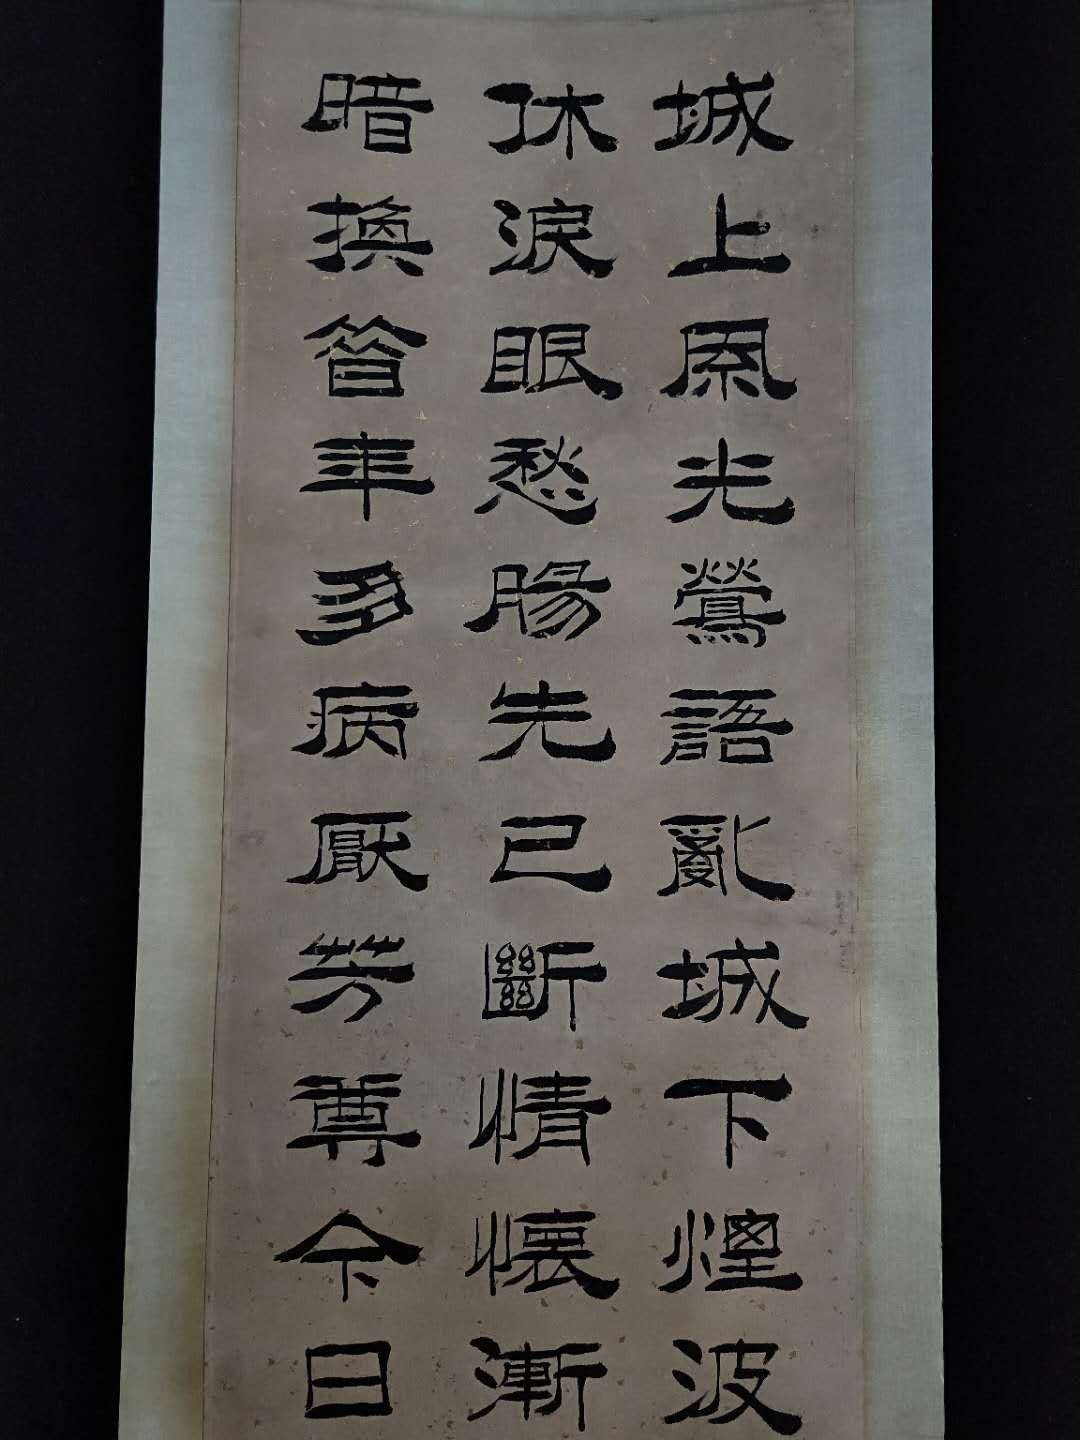 城上風光鶯語亂城下煙波
休淚眼愁腸先已斷情懷漸
暗換昔年多病厭芳尊今日